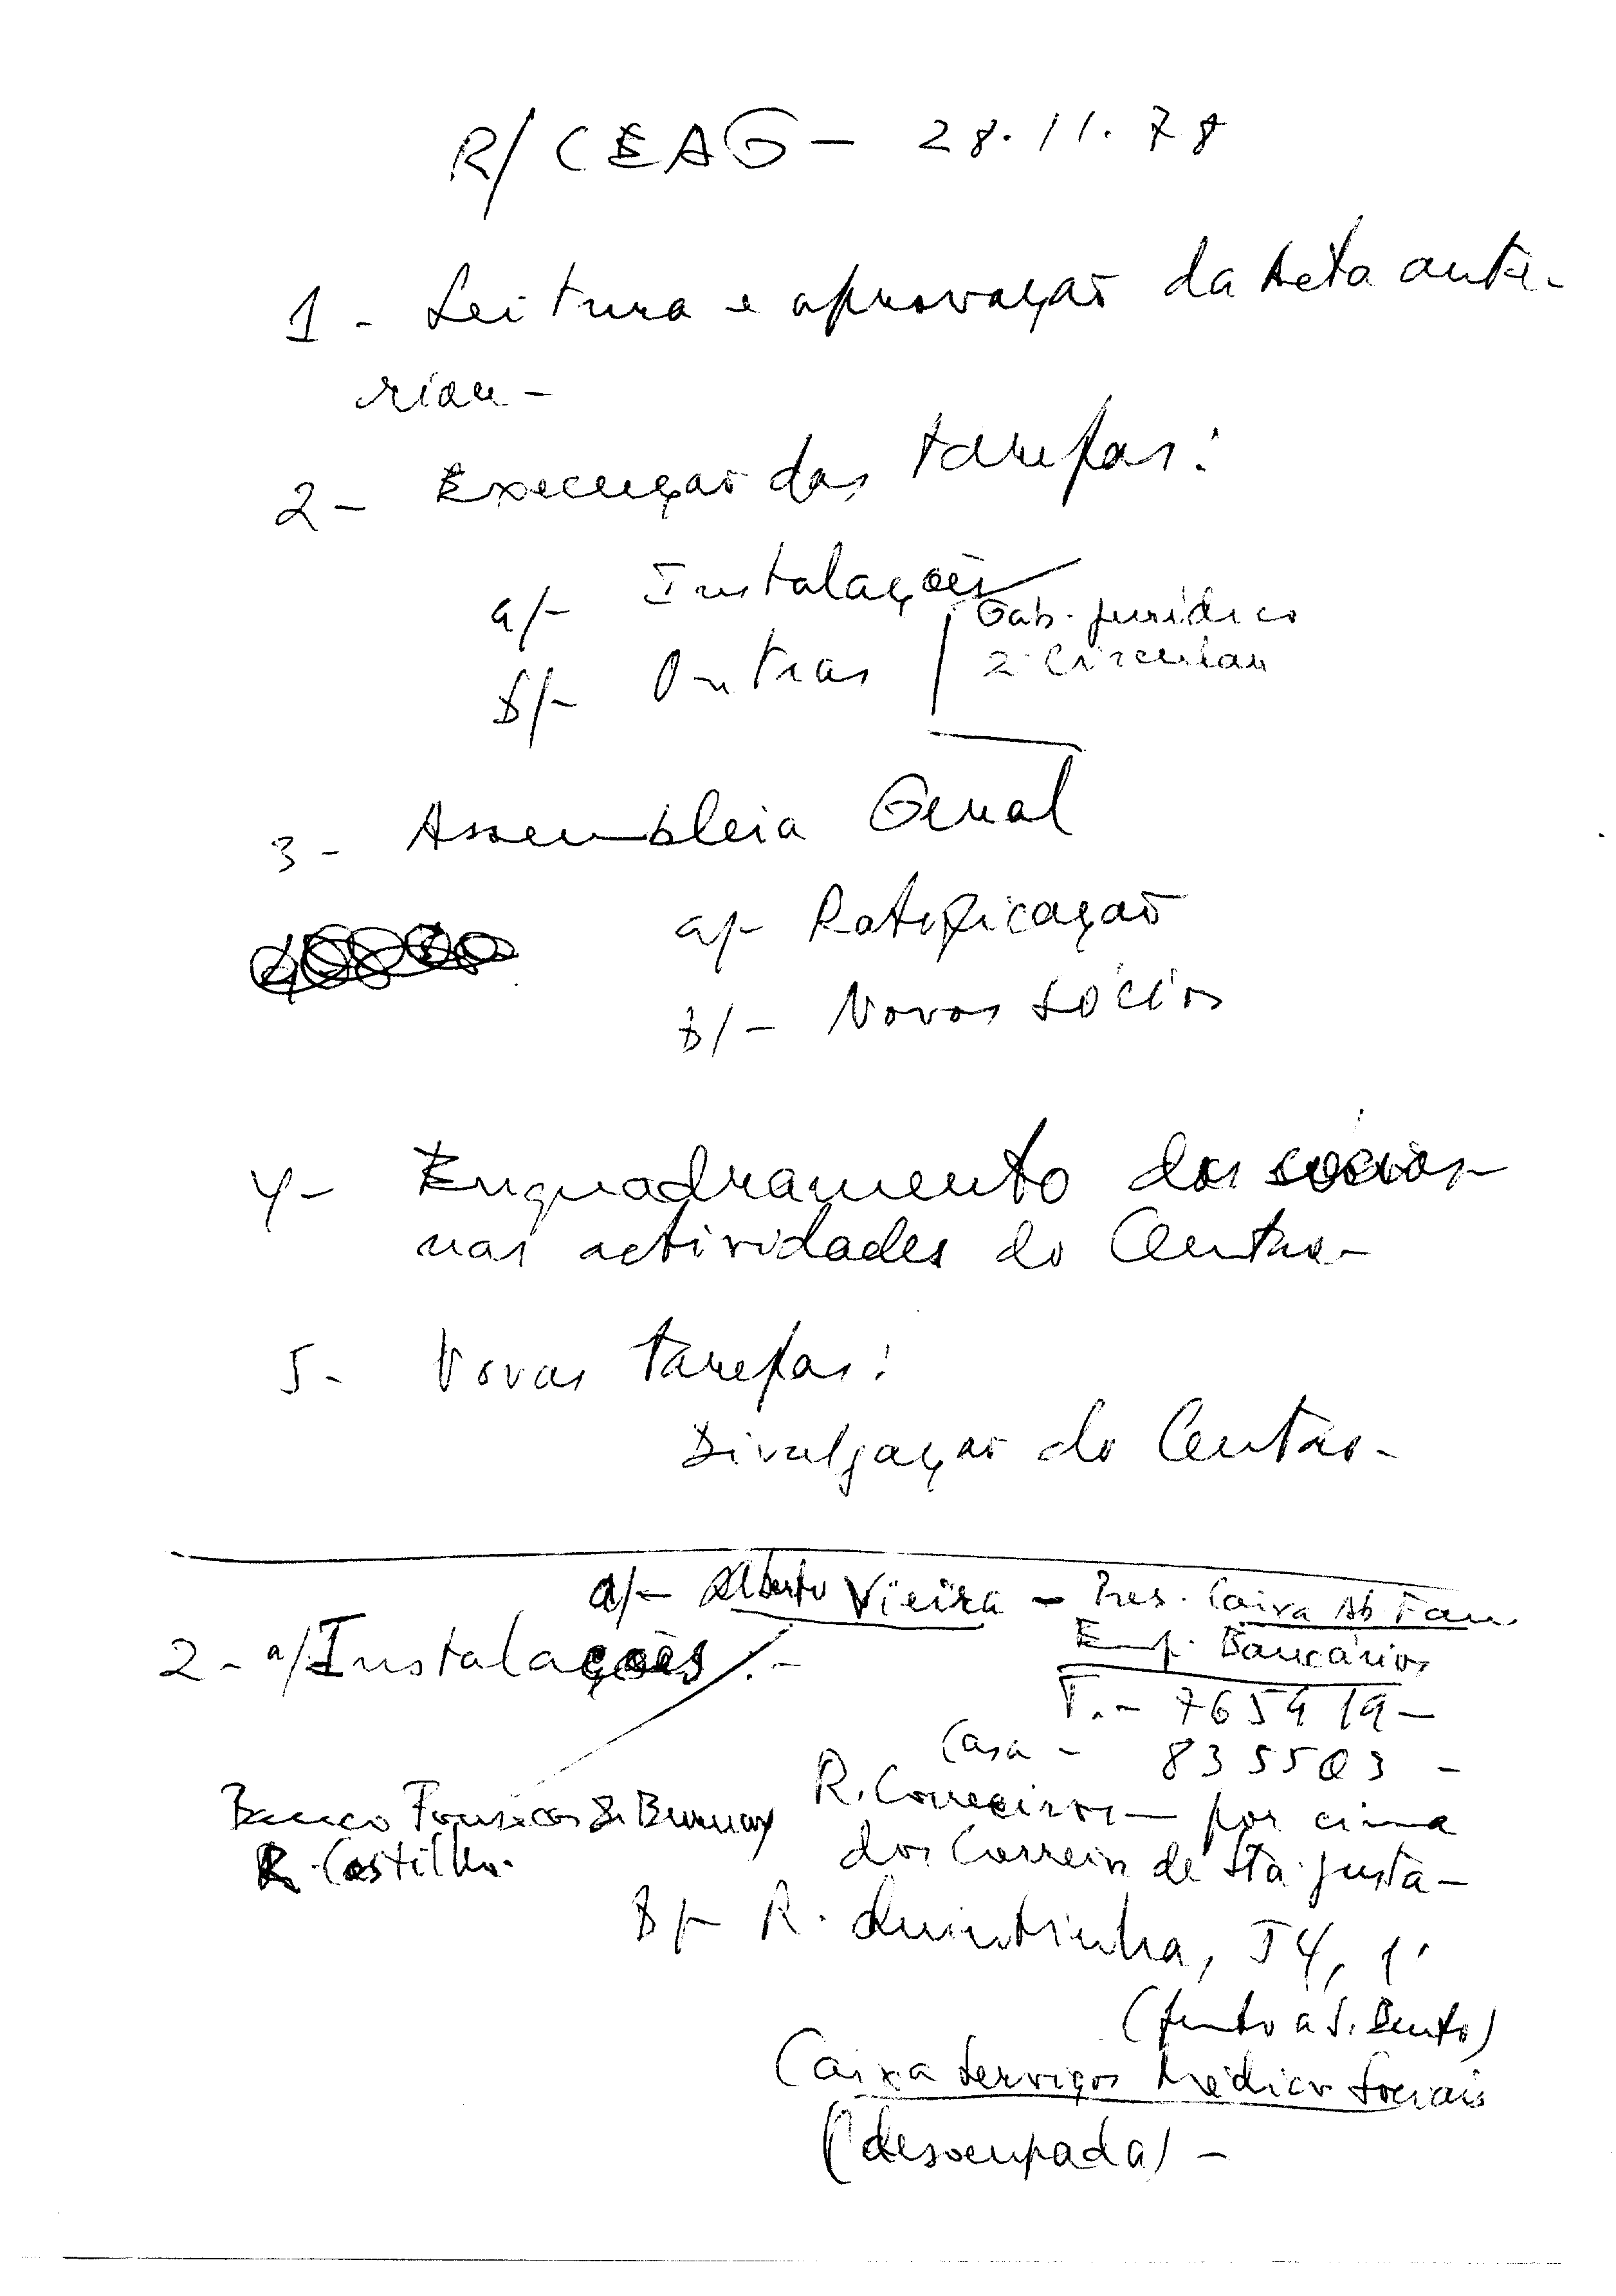 R/ CEAG - 28.11.78
1 - Leitura e aprovação da Acta ante-
rior -
2 - Execução das tarefas:
a/- Instalações
Gab. Jurídico
b/- Outras
2. Circular
3 - Assembleia Geral
a/- Ratificação
b/- Novos sócios
4 - Enquadramento dos sócios -
nas actividades do Centro -
5 - Novas tarefas:
Divulgação do Centro -
a/- Alberto Vieira - Pres. Caixa Ab. Fam.
2 - a/ Instalações: -
Emp. Bancários
T. - 765419 -
Casa - 835503 -
Banco Fonsecas & Burnay
R. Correeiros - por cima
R. Castilho.
dos Correios de Sta. Justa -
b/- R. Quintinha, 1
(junto a S. Bento)
Caixa Serviços Médico Sociais
(desocupada) -